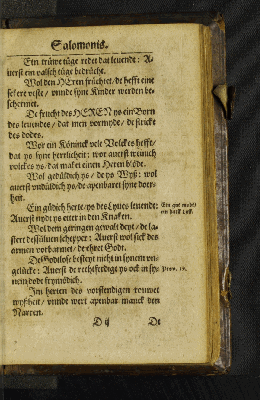 Salomonis.
Ein trüwe tüge redet dat leuende: A-
uerst ein valsch tüge bedrücht.
Wol den HEren früchtet / de hefft eine
sekere veste / vnnde syne Kinder werden be-
schermet.
De frucht des HEREN ys ein Born
des leuendes / dat men vormyde / de stricke
des dodes.
Wor ein Köninck vele Volckes hefft /
dat ys syne herrlicheit: wor auerst weinich
volckes ys / dat maket einen Heren blöde.
Wol gedüldich ys / de ys Wyß: wol
auerst vndüldich ys / de apenbaret syne doer-
heit.
Ein güdich herte / ys des lyues leuendt:
Auerst nydt ys etter in den Knaken.
Ein gut modt /
ein halff Lyff.
Wol dem geringen gewalt deyt / de la-
stert dessüluen schepper: Auerst wol sick des
armen vorbarmet / de ehret Godt.
De Godlose besteyt nicht in synem vn-
gelücke: Auerst de rechtferdige ys ock in sy-
nem dode frymödich.
Prov. 10.
Im herten des vorstendigen rouwet
wyßheit / vnnde wert apenbar manck den
Narren.
D ij
De